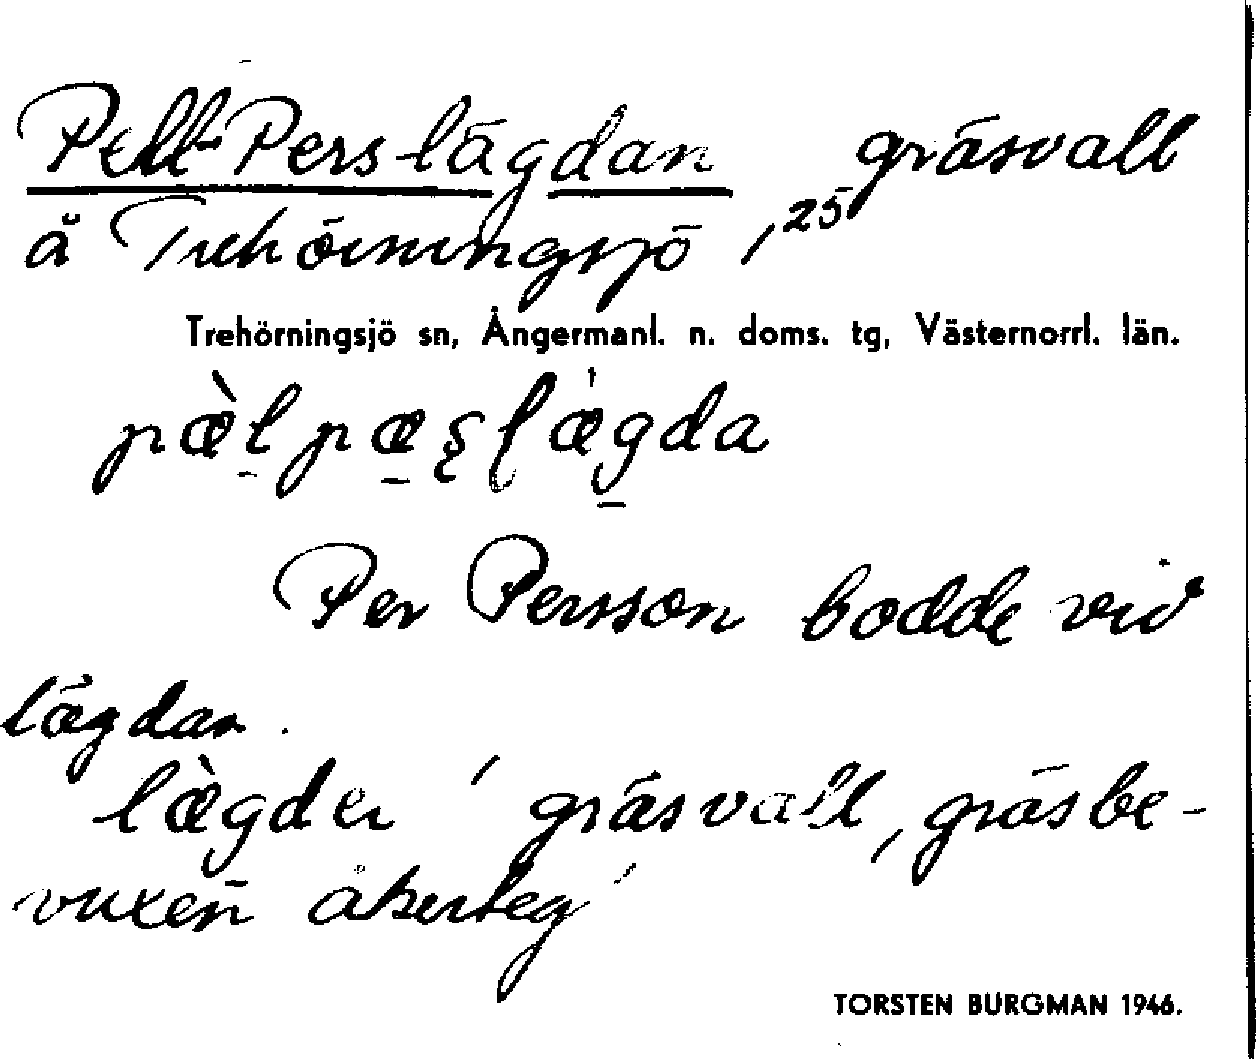 Pell-Pers-lägdan gräsvall
å Trehörningsjö 1,25
Trehörningsjö sn, Ångermanl. n. doms. tg, Västernorrl. län.
pæ̀lpæșlægda
Per Persson bodde vid
lägdan.
læ̀gdeṇ 'gräsvall, gräsbe-
vuxen åkerteg'
TORSTEN BURGMAN 1946.